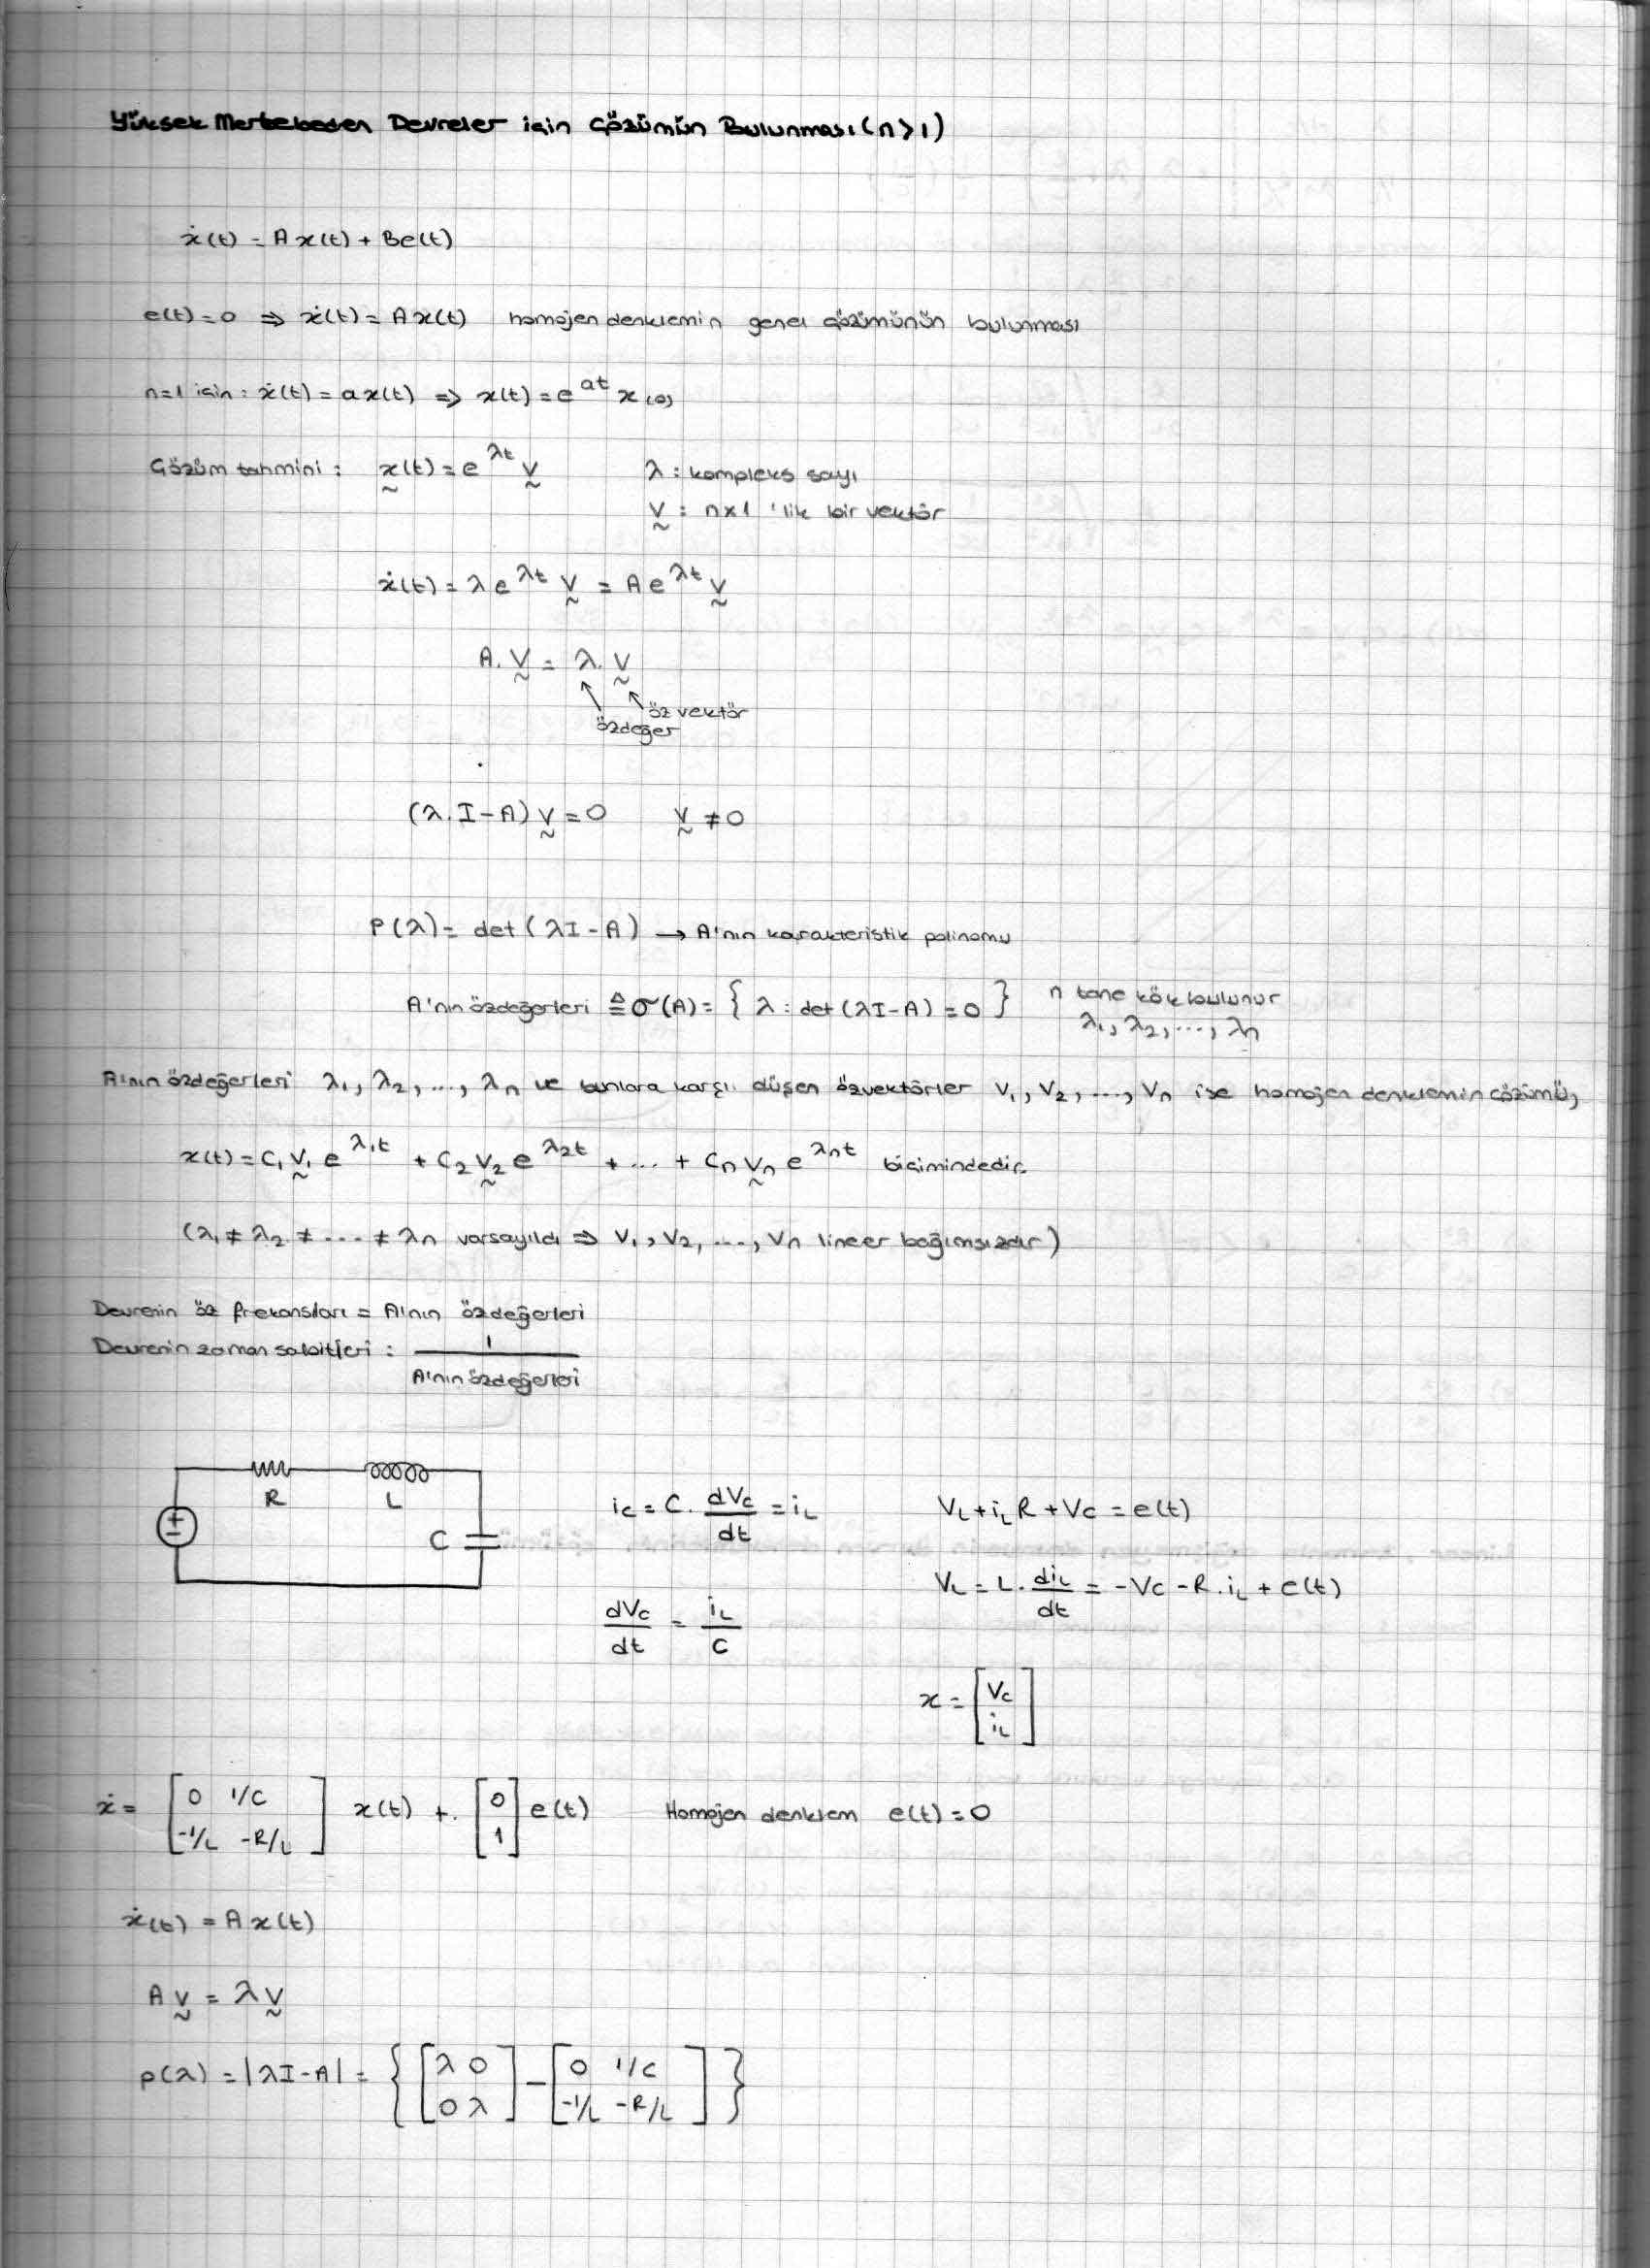 Yüksek Mertebeden Devreler için Çözümün Bulunması (n>1)
ẋ(t) = A x(t) + Be(t)
e(t)=0 ⇒ ẋ(t) = A x(t) homojen denklemin genel çözümünün bulunması
n=1 için: ẋ(t) = a x(t) ⇒ x(t) = e^{at} x(0)
Çözüm tahmini: x̰(t) = e^{λt} V̰ λ : kompleks sayı
V̰ : n×1 'lik bir vektör
ẋ(t) = λ e^{λt} V̰ = A e^{λt} V̰
A. V̰ = λ. V̰
özvektör
özdeğer
(λ. I - A) V̰ = 0 V̰ ≠ 0
P(λ) = det (λI - A) → A'nın karakteristik polinomu
A'nın özdeğerleri ≜ σ(A) = { λ : det (λI - A) = 0 } n tane kök bulunur
λ₁, λ₂, ..., λn
A'nın özdeğerleri λ₁, λ₂, ..., λn ve bunlara karşı düşen özvektörler V₁, V₂, ..., Vn ise homojen denklemin çözümü,
x(t) = C₁ V̰₁ e^{λ₁t} + C₂ V̰₂ e^{λ₂t} + ... + Cn V̰n e^{λnt} biçimindedir.
(λ₁ ≠ λ₂ ≠ ... ≠ λn varsayıldı ⇒ V₁, V₂, ..., Vn lineer bağımsızdır)
Devrenin öz frekansları = A'nın özdeğerleri
Devrenin zaman sabitleri : 1 / A'nın özdeğerleri
R L
C
ic = C. dVc/dt = iL VL + iL R + Vc = e(t)
VL = L. diL/dt = -Vc - R. iL + e(t)
dVc/dt = iL/C
x = [Vc iL]
ẋ = [0 1/C -1/L -R/L] x(t) + . [0 1] e(t) Homojen denklem e(t) = 0
ẋ(t) = A x(t)
A V̰ = λ V̰
p(λ) = |λI - A| = { [λ 0 0 λ] - [0 1/C -1/L -R/L] }